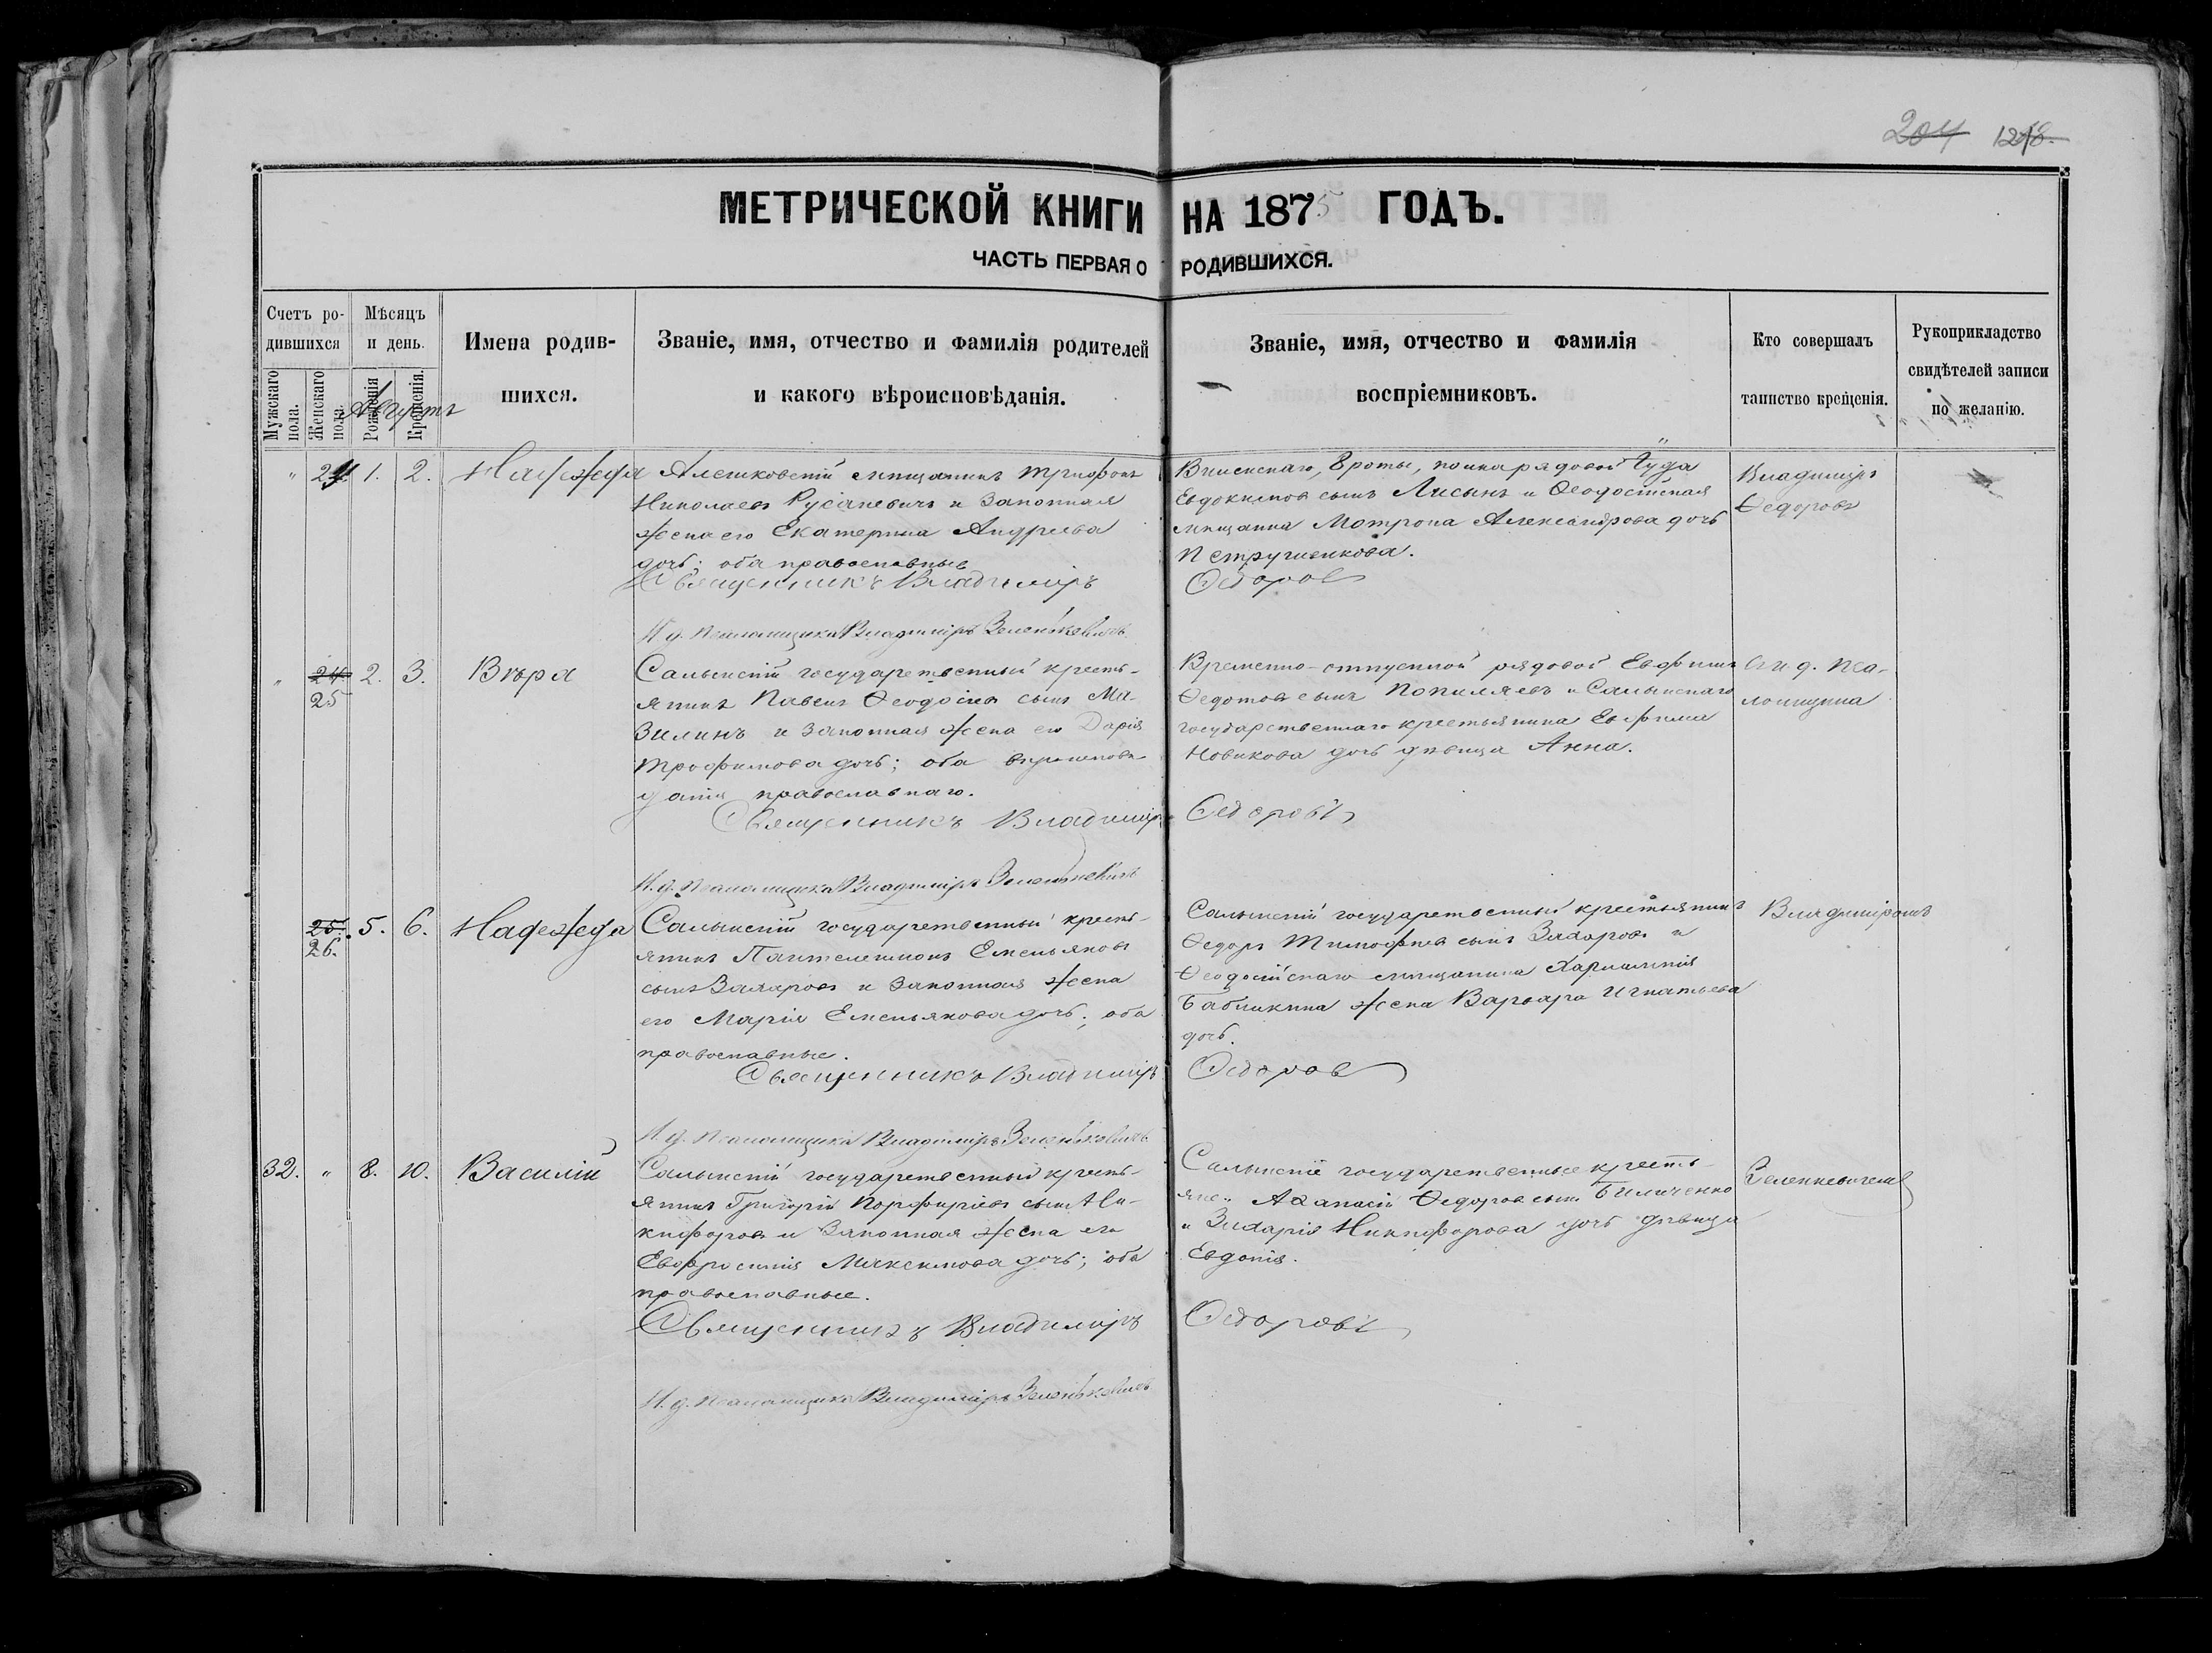 204 1218.
МЕТРИЧЕСКОЙ КНИГИ НА 1875 ГОДЪ.
ЧАСТЬ ПЕРВАЯ О РОДИВШИХСЯ.
Счетъ ро-
дившихся
Мужскаго пола.
Женскаго пола.
Мѣсяцъ
и день.
Рожденія
Крещенія.
Августъ
Имена родив-
шихся.
Званіе, имя, отчество и фамилія родителей
и какого вѣроисповѣданія.
Званіе, имя, отчество и фамилія
воспріемниковъ.
Кто совершалъ
таинство крещенія.
Рукоприкладство
свидѣтелей записи
по желанію.
" 24. 1. 2. Надежда
Алешковскій мѣщанинъ Трифонъ
Николаевъ Русаневичъ и законная
жена его Екатерина Андреева
дочь; оба православные
Священникъ Владиміръ
И. д. псаломщика Владиміръ Зеленкевичъ
8 роты, рядовой
Евдокимовъ сынъ Лисынъ и Ѳеодосійская
мѣщанка Мотрона Александрова дочь
Петрушенкова.
Ѳедоровъ
Владиміръ
Ѳедоровъ
" 24 25 2. 3. Вѣра
Салынскій государственный кресть-
янинъ Павелъ Ѳеодосіевъ сынъ Ма-
зилинъ и законная жена его Дарія
Трофимова дочь; оба вѣроисповѣ-
данія православнаго.
Священникъ Владиміръ
И. д. псаломщика Владиміръ Зеленкевичъ
Временно-отпускной рядовой Евфимъ
Ѳедотовъ сынъ Попиляевъ и Салынскаго
государственнаго крестьянина Евфима
Новикова дочь дѣвица Анна.
Ѳедоровъ
с и. д. пса-
ломщика
25. 26. 5. 6. Надежда
Салынскій государственный кресть-
янинъ Пантелеимонъ Емельяновъ
сынъ Захаровъ и законная жена
его Марія Емельянова дочь; оба
православные.
Священникъ Владиміръ
И. д. псаломщика Владиміръ Зеленкевичъ
Салынскій государственный крестьянинъ
Ѳедоръ Тимофеевъ сынъ Захаровъ и
Ѳеодосійскаго мѣщанина Харлампія
Бабликина жена Варвара Игнатьева
дочь.
Ѳедоровъ
Владиміромъ
32. " 8. 10. Василій
Салынскій государственный кресть-
янинъ Григорій Порфиріевъ сынъ Ни-
кифоровъ и законная жена его
Евфросинія Максимова дочь; оба
православные.
Священникъ Владиміръ
И. д. псаломщика Владиміръ Зеленкевичъ
Салынскіе государственные кресть-
яне: Аѳанасій Ѳедоровъ сынъ Биличенко
и Захарія Никифорова дочь дѣвица
Евдокія.
Ѳедоровъ
Зеленкевичемъ